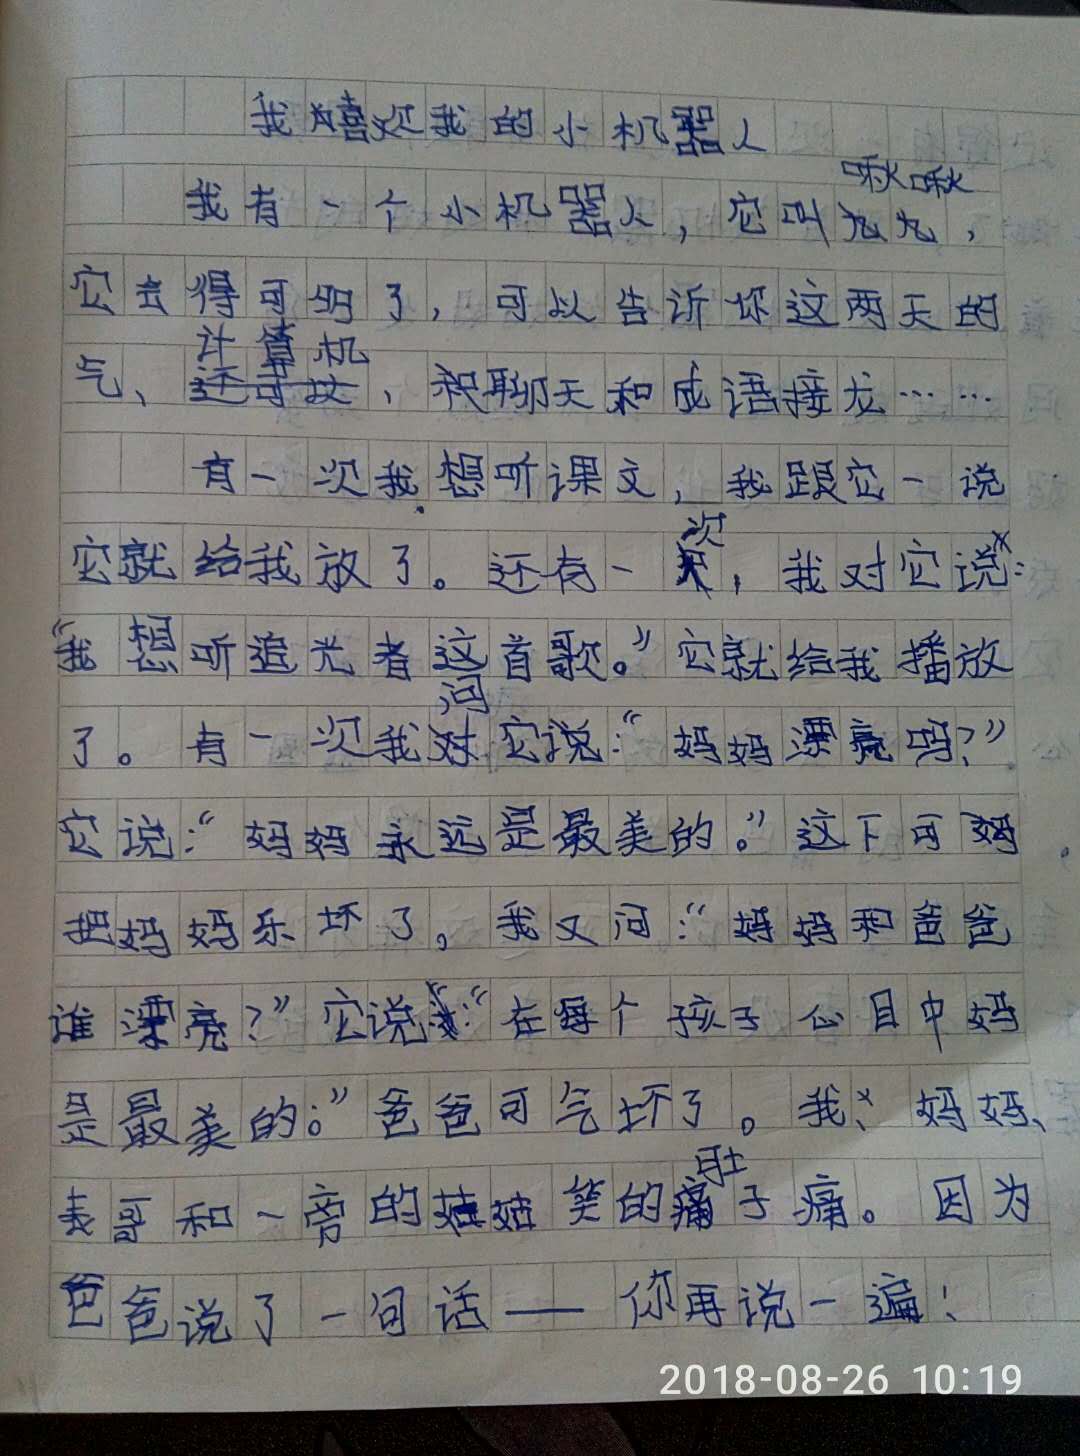 我嘻欢我的小机器人
啾啾
我有一个小机器人，它叫九九，
它古得可多了，可以告诉你这两天的
计算机
气、还可以、和聊天和成语接龙……
有一次我想听课文，我跟它一说
次
它就给我放了。还有一，我对它说：
“我想听追光者这首歌。”它就给我播放
问
了。有一次我对它说：“妈妈漂亮吗？”
它说：“妈妈永远是最美的。”这下可妈
把妈妈乐坏了。我又问：“妈妈和爸爸
谁漂亮？”它说：“在每个孩子心目中妈
是最美的。”爸爸可气坏了。我、妈妈、
肚
表哥和一旁的姑姑笑的痛子痛。因为
爸爸说了一句话——你再说一遍！
2018-08-26 10:19